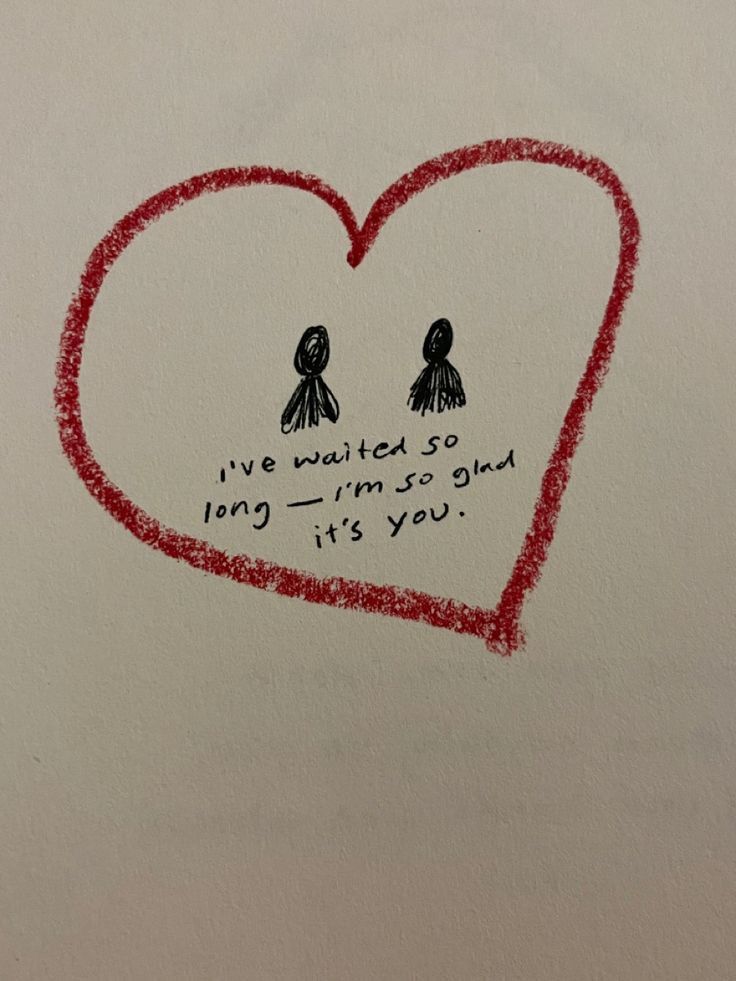 i've waited so
long — i'm so glad
it's you.